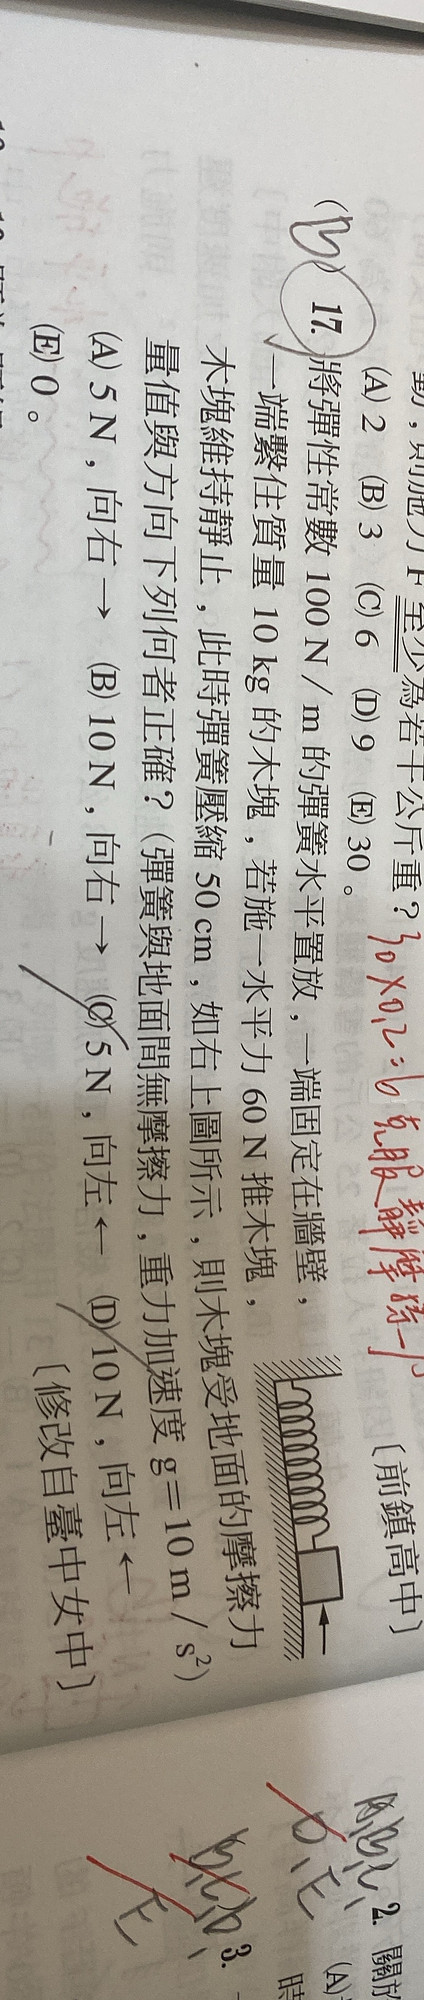 動，則施力 F 至少為若干公斤重？
(A) 2 (B) 3 (C) 6 (D) 9 (E) 30。
30×0.2=6 克服靜摩擦力
〔前鎮高中〕
(B) 17. 將彈性常數 100 N / m 的彈簧水平置放，一端固定在牆壁，
一端繫住質量 10 kg 的木塊，若施一水平力 60 N 推木塊，
木塊維持靜止，此時彈簧壓縮 50 cm，如右上圖所示，則木塊受地面的摩擦力
量值與方向下列何者正確？（彈簧與地面間無摩擦力，重力加速度 g＝10 m / s²）
(A) 5 N，向右→ (B) 10 N，向右→ (C) 5 N，向左← (D) 10 N，向左←
(E) 0。
〔修改自臺中女中〕
2. 關於
(A)
D,E
3.
時
E